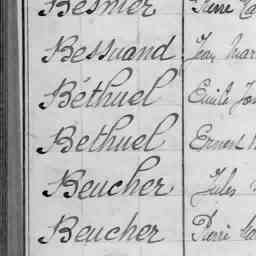 Besnier René
Bessuand Jean Mar
Béthuel Emile
Bethuel Ernest
Beucher Jules
Beucher Pierre